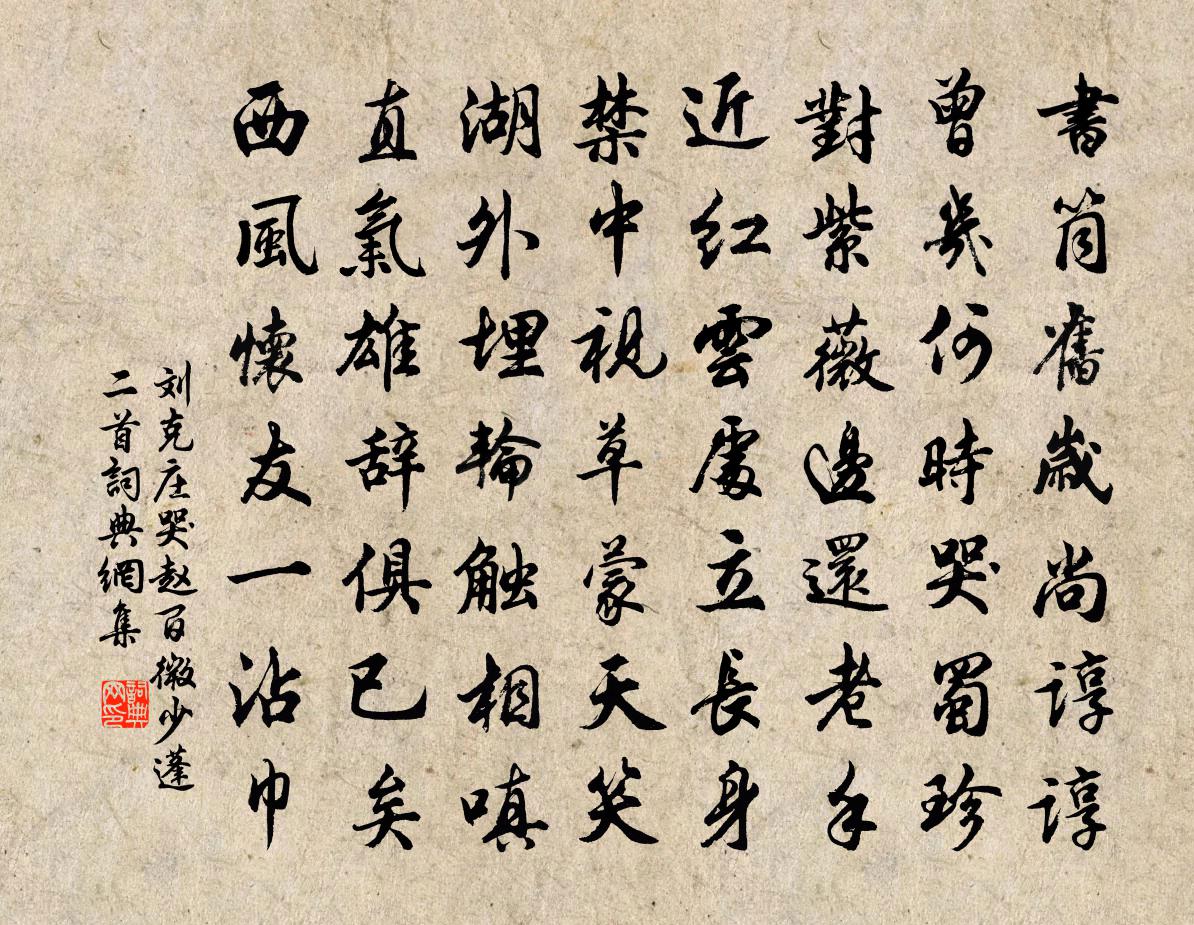 書筒舊歲尚諄諄
曾幾何時哭蜀珍
對紫薇邊還老手
近紅雲處立長身
禁中視草蒙天笑
湖外埋輪触相嗔
直氣雄辞俱已矣
西風懷友一沾巾
刘克庄哭赵百微少蓬
二首詞典網集
詞典
网印